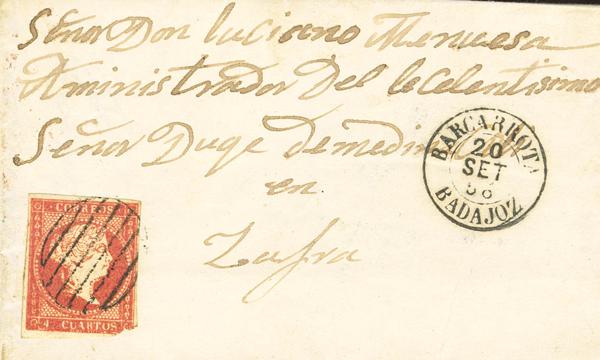 Señor Don luciano Menuesa
Aministrador Del lecelentisimo
Señor Duqe demedin
en
Zafra
BARCARROTA
20
SET
58
BADAJOZ
CORREOS
4 CUARTOS